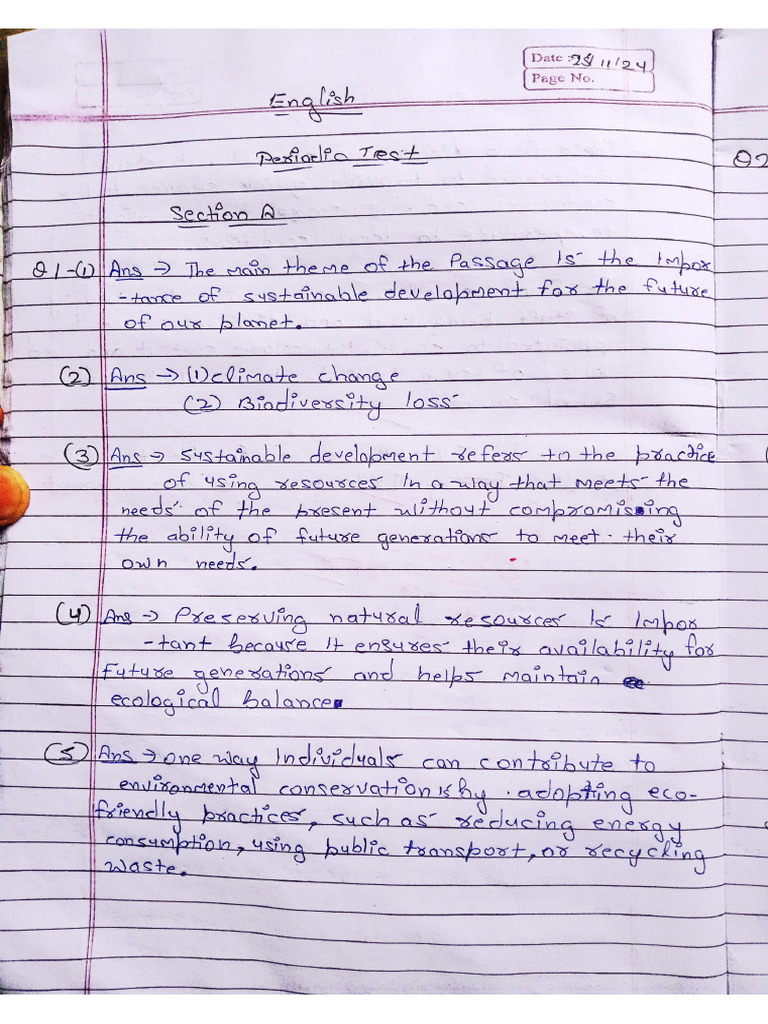 Date : 25/11/24
Page No.
English
Periodic Test
Section A
Q1-(1) Ans → The main theme of the Passage Is the Impor
-tance of sustainable development for the future
of our planet.
(2) Ans → (1) climate change
(2) Biodiversity loss
(3) Ans → sustainable development refers to the practice
of using resources In a way that meets the
needs of the present without compromising
the ability of future generations to meet their
own needs.
(4) Ans → Preserving natural resources Is Impor
-tant because It ensures their availability for
Future generations and helps maintain
ecological balance.
(5) Ans → one way Individuals can contribute to
environmental conservation is by adopting eco-
friendly practices, such as reducing energy
consumption, using public transport, or recycking
waste.